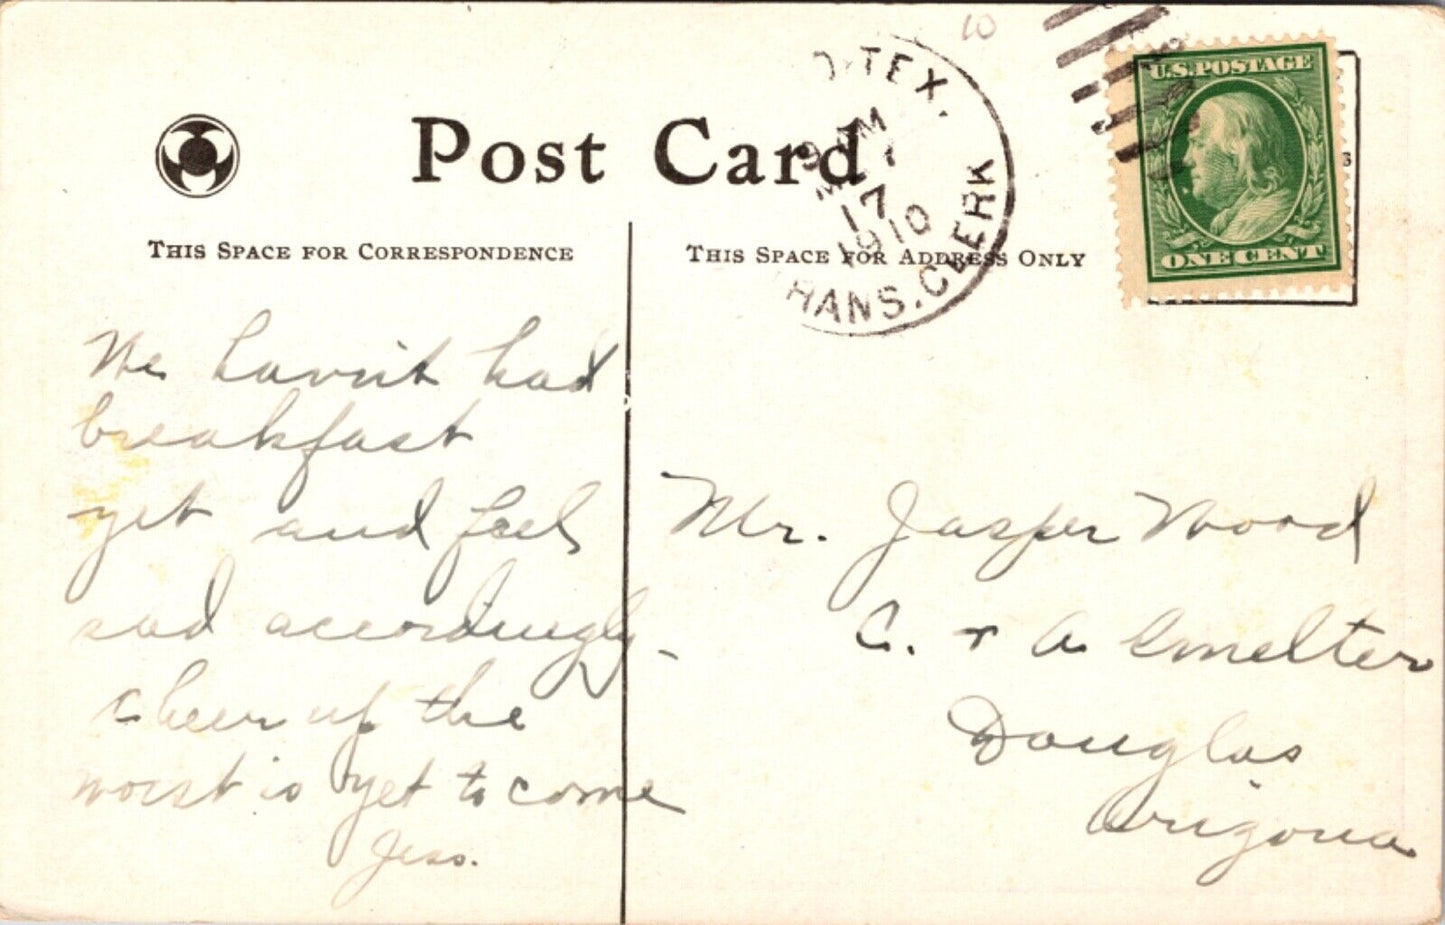 10
Post Card
THIS SPACE FOR CORRESPONDENCE
THIS SPACE FOR ADDRESS ONLY
O. TEX.
M
17
1910
RANS. CLERK
U.S. POSTAGE
ONE CENT
We havn't had
breakfast
yet and feel
sad accordingly -
cheer up the
worst is yet to come
Jess.
Mr. Jasper Wood
C. + A Smelter
Douglas
Arizona